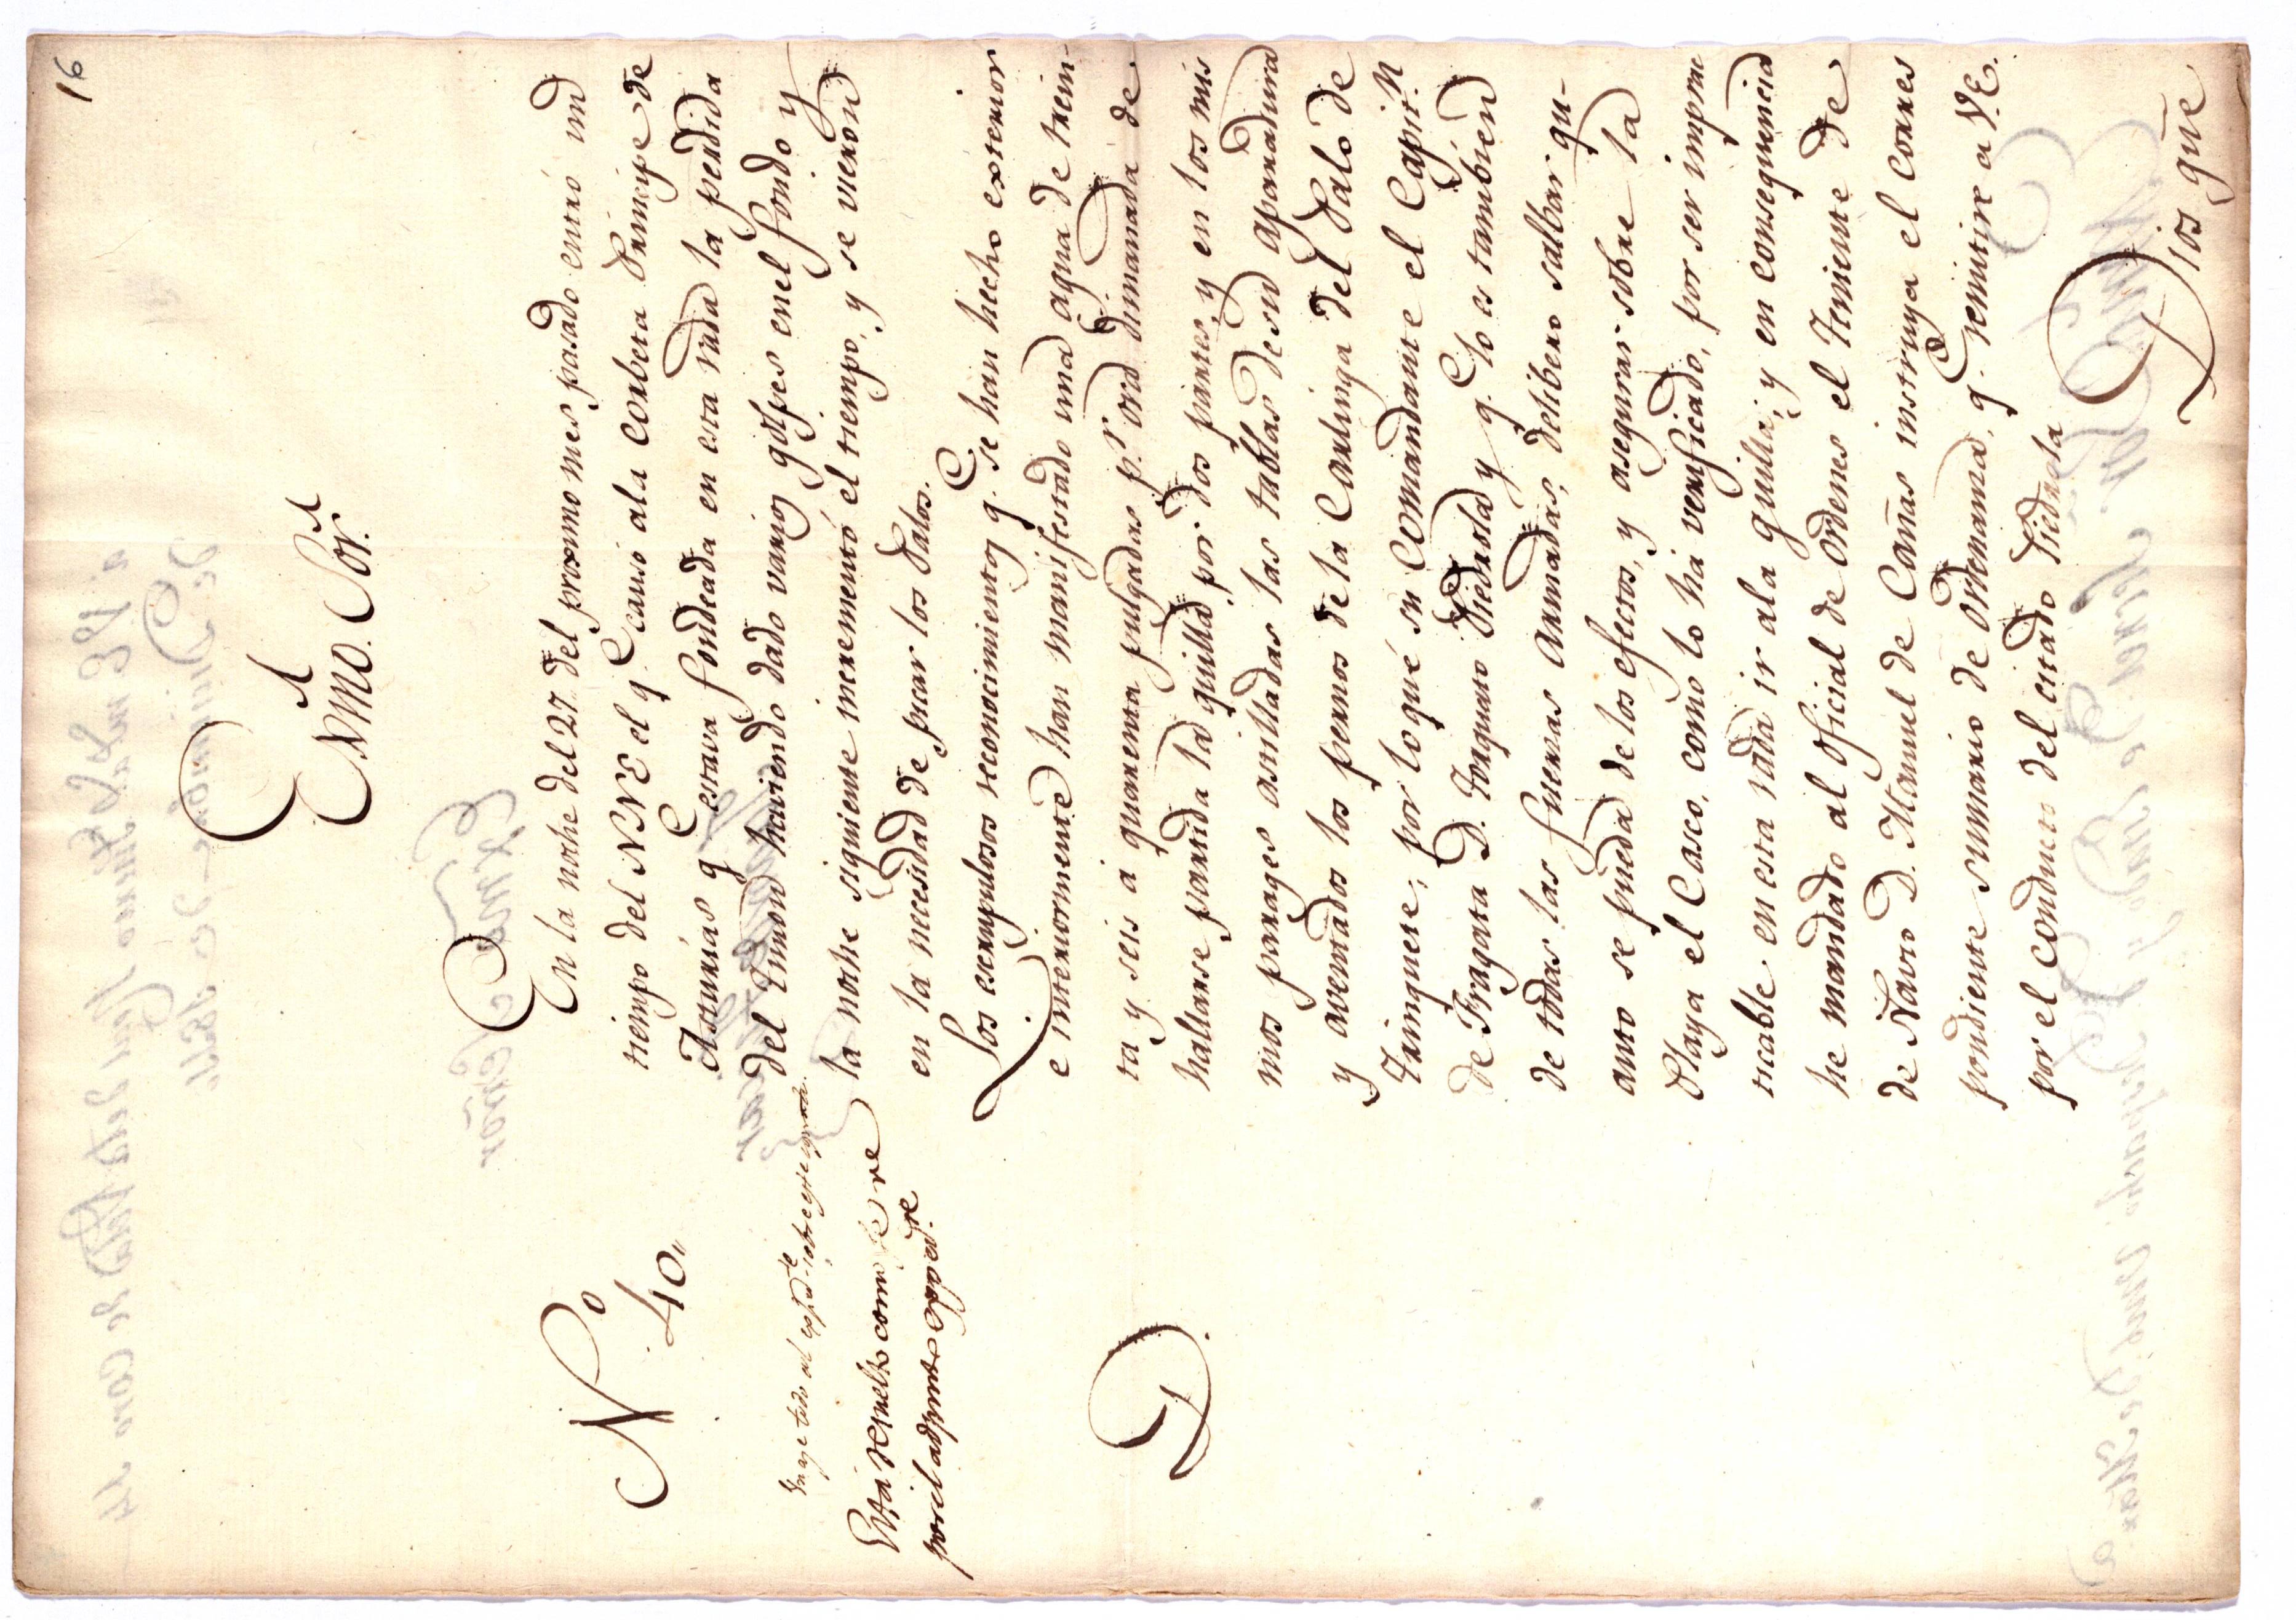 16
Exmo. Sor.
Nº 40,,
En la noche del 27. del proxmo mes pasado entró un
tiempo del NNE el q.e causó ala Corbeta Principe de
Asturias q.e estava fondeada en esta rada la perdida
del timon haviendo dado varios golpes en el fondo y
la noche siguiente incrementó el tiempo, y se vieron
en la necesidad de picar los Palos.
Los escrupulosos reconocimientos q.e se han hecho exterior
e interiormente han manifestado una agua de trein-
ta y seis á quarenta pulgadas p.r ora dimanada de
hallarse partida la quilla por dos partes, y en los mis
mos parages astilladas las tablas de su aparadura
y aventados los pernos de la Carlinga del Palo de
Trinquete, por loqué su Comandante el Capit.n
de Fragata D. Torquato Piedrola y q.e lo es tambien
de todas las fuerzas Armadas, delibero salbar qu-
anto se pueda de los efectos, y asegurar sobre la
Playa el Casco, como lo há verificado, por ser imprac
ticable en esta rada ir ala quilla, y en consequencia
he mandado al oficial de Ordenes el Teniente de
de Navio D. Manuel de Cañas instruya el corres
pondiente sumario de Ordenanza, q.e remitire a V.E.
por el conducto del citado Piedrola
Dios que
Está resuelto como se
por el adjunto exped.te